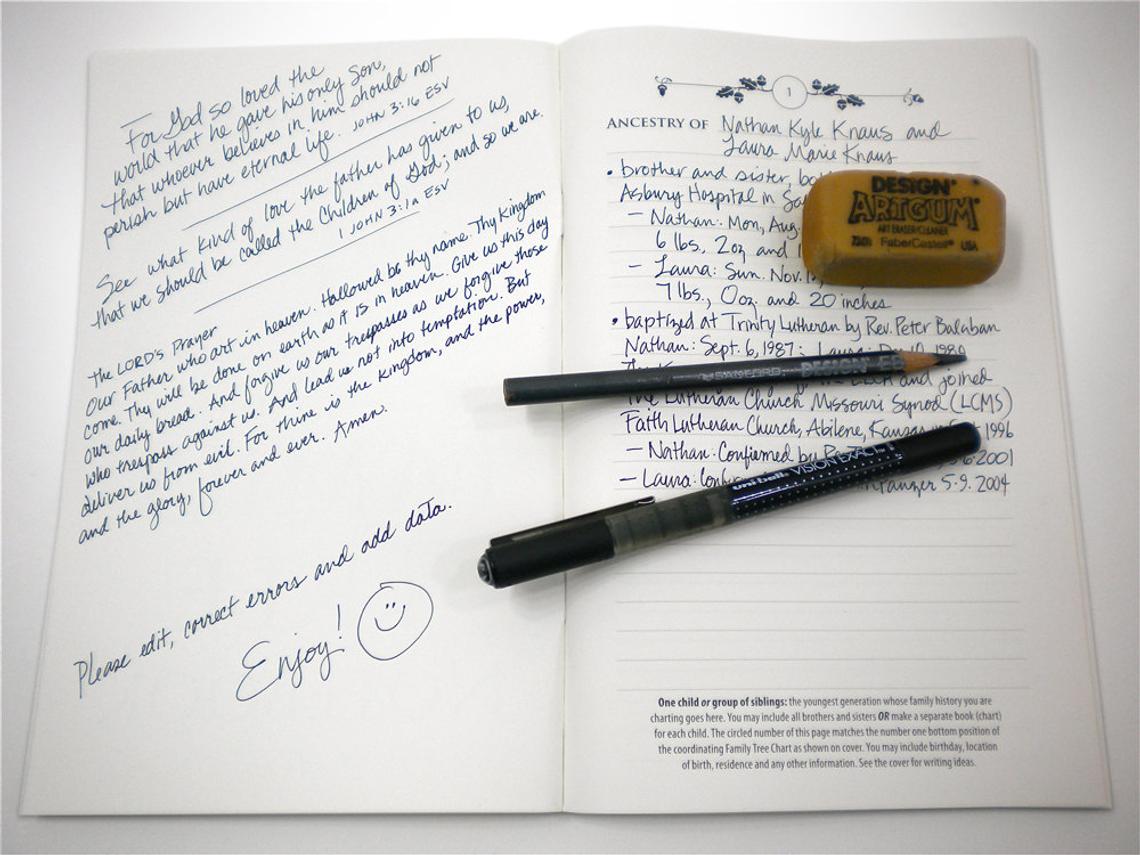 For God so loved the
world that he gave his only Son,
that whoever believes in him should not
perish but have eternal life. JOHN 3:16 ESV
See what kind of love the father has given to us,
that we should be called the Children of God; and so we are.
1 JOHN 3:1a ESV
The LORD's Prayer
Our Father who art in heaven. Hallowed be thy name. Thy Kingdom
come. Thy will be done on earth as it is in heaven. Give us this day
our daily bread. And forgive us our trespasses as we forgive those
who trespass against us. And lead us not into temptation. But
deliver us from evil. For thine is the kingdom, and the power,
and the glory, forever and ever. Amen.
Please edit, correct errors and add data.
Enjoy!
1
ANCESTRY OF Nathan Kyle Knaus and
Laura Marie Knaus
• brother and sister,
Asbury Hospital in
– Nathan: Mon, Aug.
6 lbs. 2oz and
– Laura: Sun. Nov.
7 lbs., 0oz. and 20 inches
• baptized at Trinity Lutheran by Rev. Peter Balaban
Nathan: Sept. 6, 1987;
and joined
The Lutheran Church Missouri Synod (LCMS)
Faith Lutheran Church, Abilene, Kansas 1996
– Nathan: Confirmed by 2001
– Laura: 5.9.2004
DESIGN
ARTGUM
ART ERASER/CLEANER
FaberCastell USA
SANFORD DESIGN
uni-ball VISION EXACT
One child or group of siblings: the youngest generation whose family history you are
charting goes here. You may include all brothers and sisters OR make a separate book (chart)
for each child. The circled number of this page matches the number one bottom position of
the coordinating Family Tree Chart as shown on cover. You may include birthday, location
of birth, residence and any other information. See the cover for writing ideas.